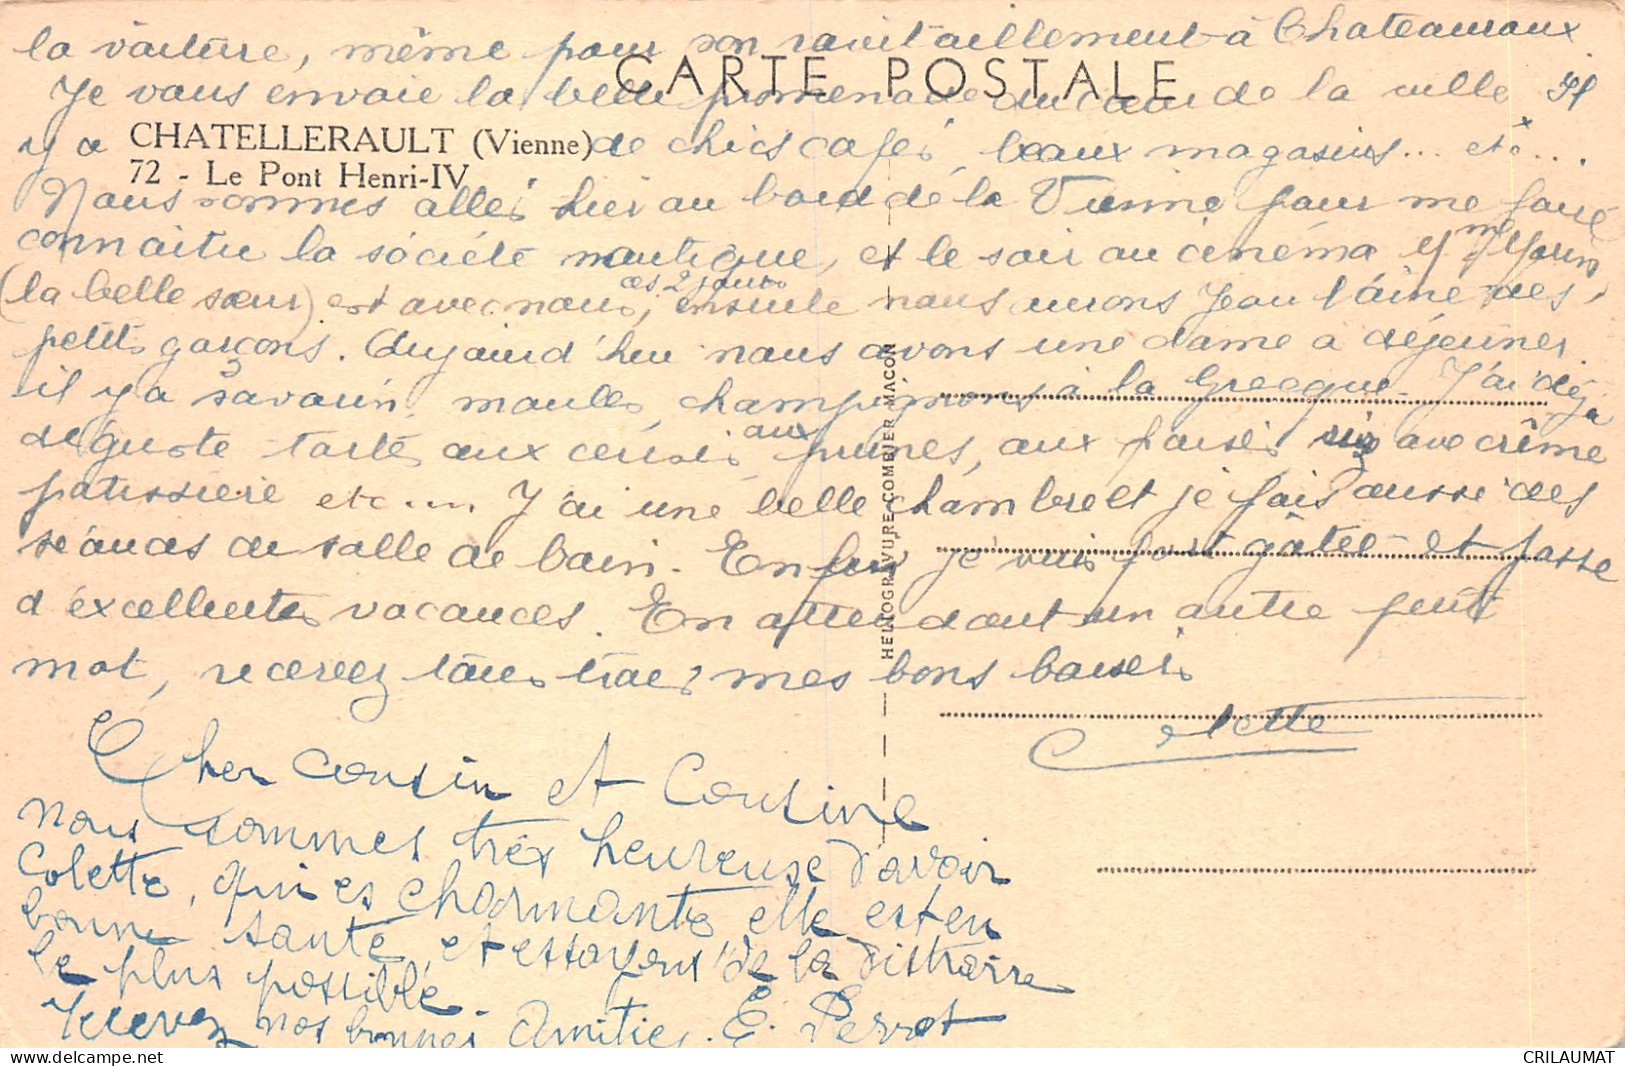 la voiture, même pour son ravitaillement à Chateauroux.
CARTE POSTALE
Je vous envoie la belle promenade au cœur de la ville. Il
y a de chics cafés, beaux magasins... etc...
CHATELLERAULT (Vienne)
72 - Le Pont Henri-IV
Nous sommes allés hier au bord de la Vienne pour me faire
connaitre la société nautique, et le soir au cinéma. Mme
(la belle sœur) est avec nous ces 2 jours, ensuite nous aurons Jean l'ainé des
petits garçons. Aujourd'hui nous avons une dame a déjeuner.
il y a savarin, moules, champignons à la Grecque. J'ai déjà
déguste tarte aux cerises, aux prunes, aux poires avec crême
patissiere etc.... J'ai une belle chambre et je fais aussi des
séances de salle de bain. Enfin je suis fort gâtée et passe
d'éxcellentes vacances. En attendant un autre petit
mot, recevez tous trois mes bons baisers
Colette
HELIOGRAVURE COMBIER MACON
Cher Cousin et Cousine
nous sommes très heureuse d'avoir
Colette, qui es charmante elle est en
bonne santé, et essayons de la distraire
le plus possible
Recevez nos bonnes Amitiés. E. Perrot
CRILAUMAT